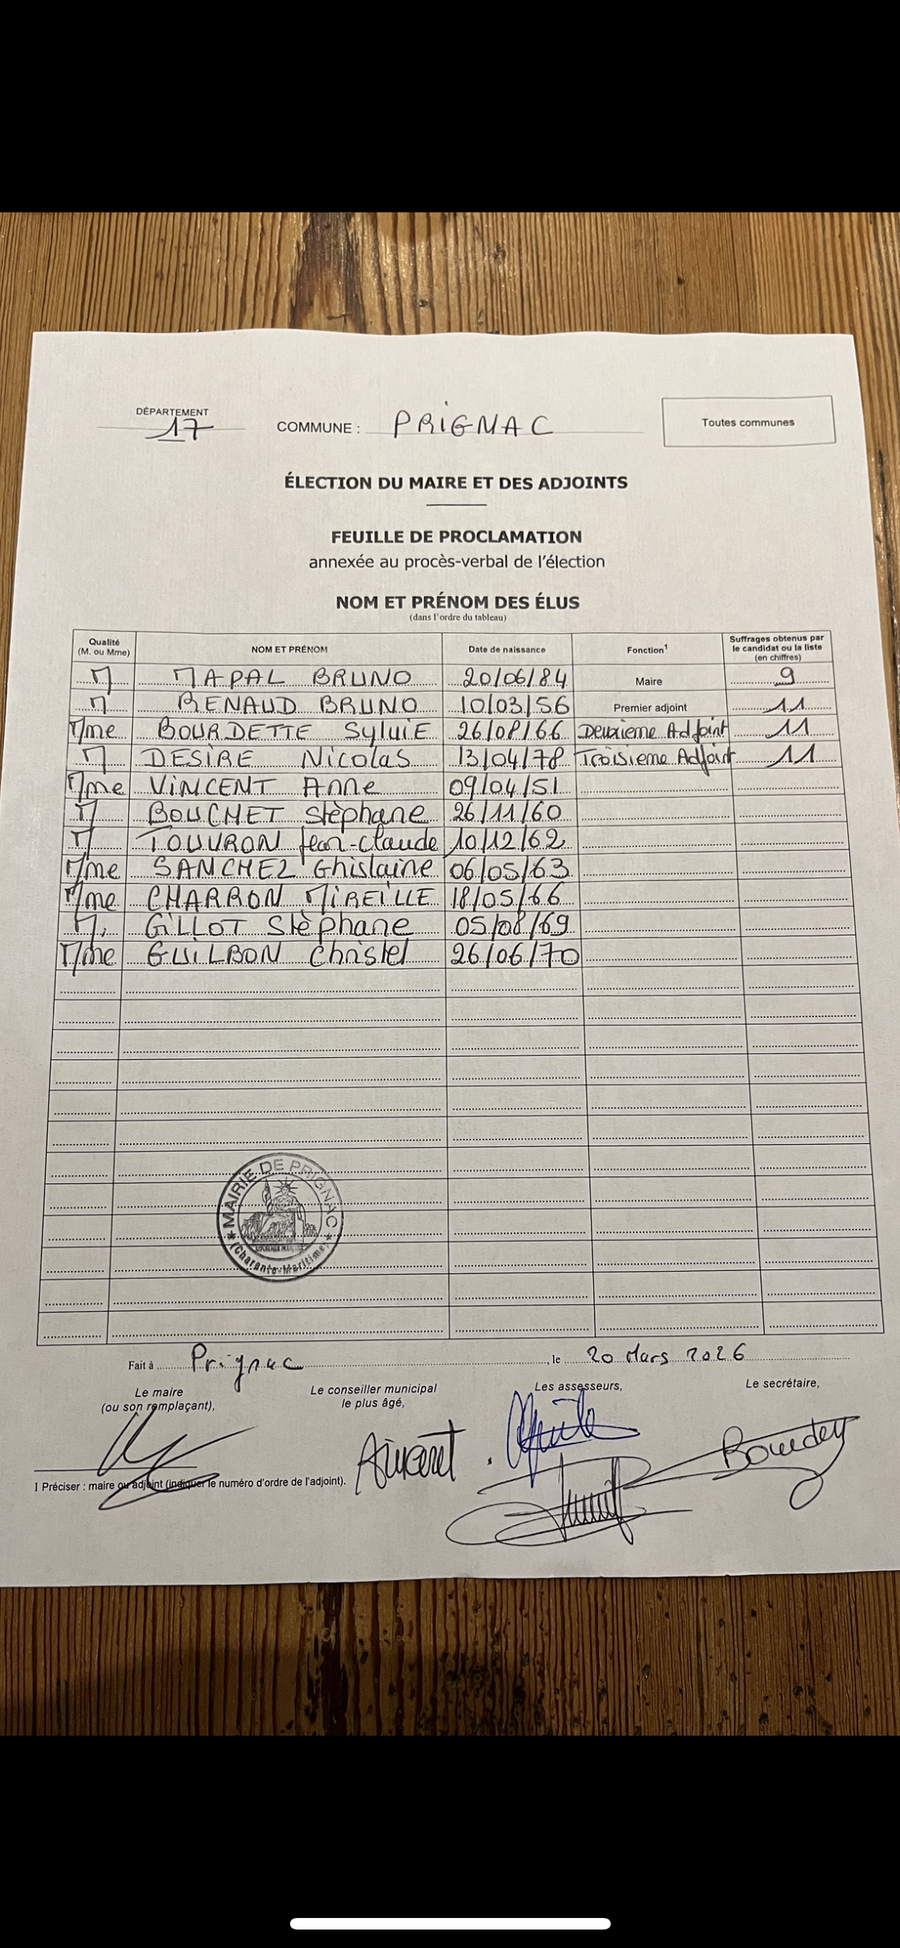 DÉPARTEMENT
17
COMMUNE : PRIGNAC
Toutes communes
ÉLECTION DU MAIRE ET DES ADJOINTS
FEUILLE DE PROCLAMATION
annexée au procès-verbal de l'élection
NOM ET PRÉNOM DES ÉLUS
(dans l'ordre du tableau)
Qualité (M. ou Mme) NOM ET PRÉNOM Date de naissance Fonction¹ Suffrages obtenus par le candidat ou la liste (en chiffres)
M MAPAL BRUNO 20/06/84 Maire 9
M RENAUD BRUNO 10/03/56 Premier adjoint 11
Mme BOURDETTE Sylvie 26/08/66 Deuxième Adjoint 11
M DESIRE Nicolas 13/04/78 Troisième Adjoint 11
Mme VINCENT Anne 09/04/51
M BOUCHET Stèphane 26/11/60
M TOUVRON Jean-claude 10/12/62
Mme SANCHEZ Ghislaine 06/05/63
Mme CHARRON MIREILLE 18/05/66
M. GILLOT Stèphane 05/08/69
Mme GUILBON Christel 26/06/70
MAIRIE DE PRIGNAC
(Charente-Maritime)
Fait à Prignac, le 20 Mars 2026
Le maire (ou son remplaçant),
Le conseiller municipal le plus âgé,
Les assesseurs,
Le secrétaire,
1 Préciser : maire ou adjoint (indiquer le numéro d'ordre de l'adjoint).